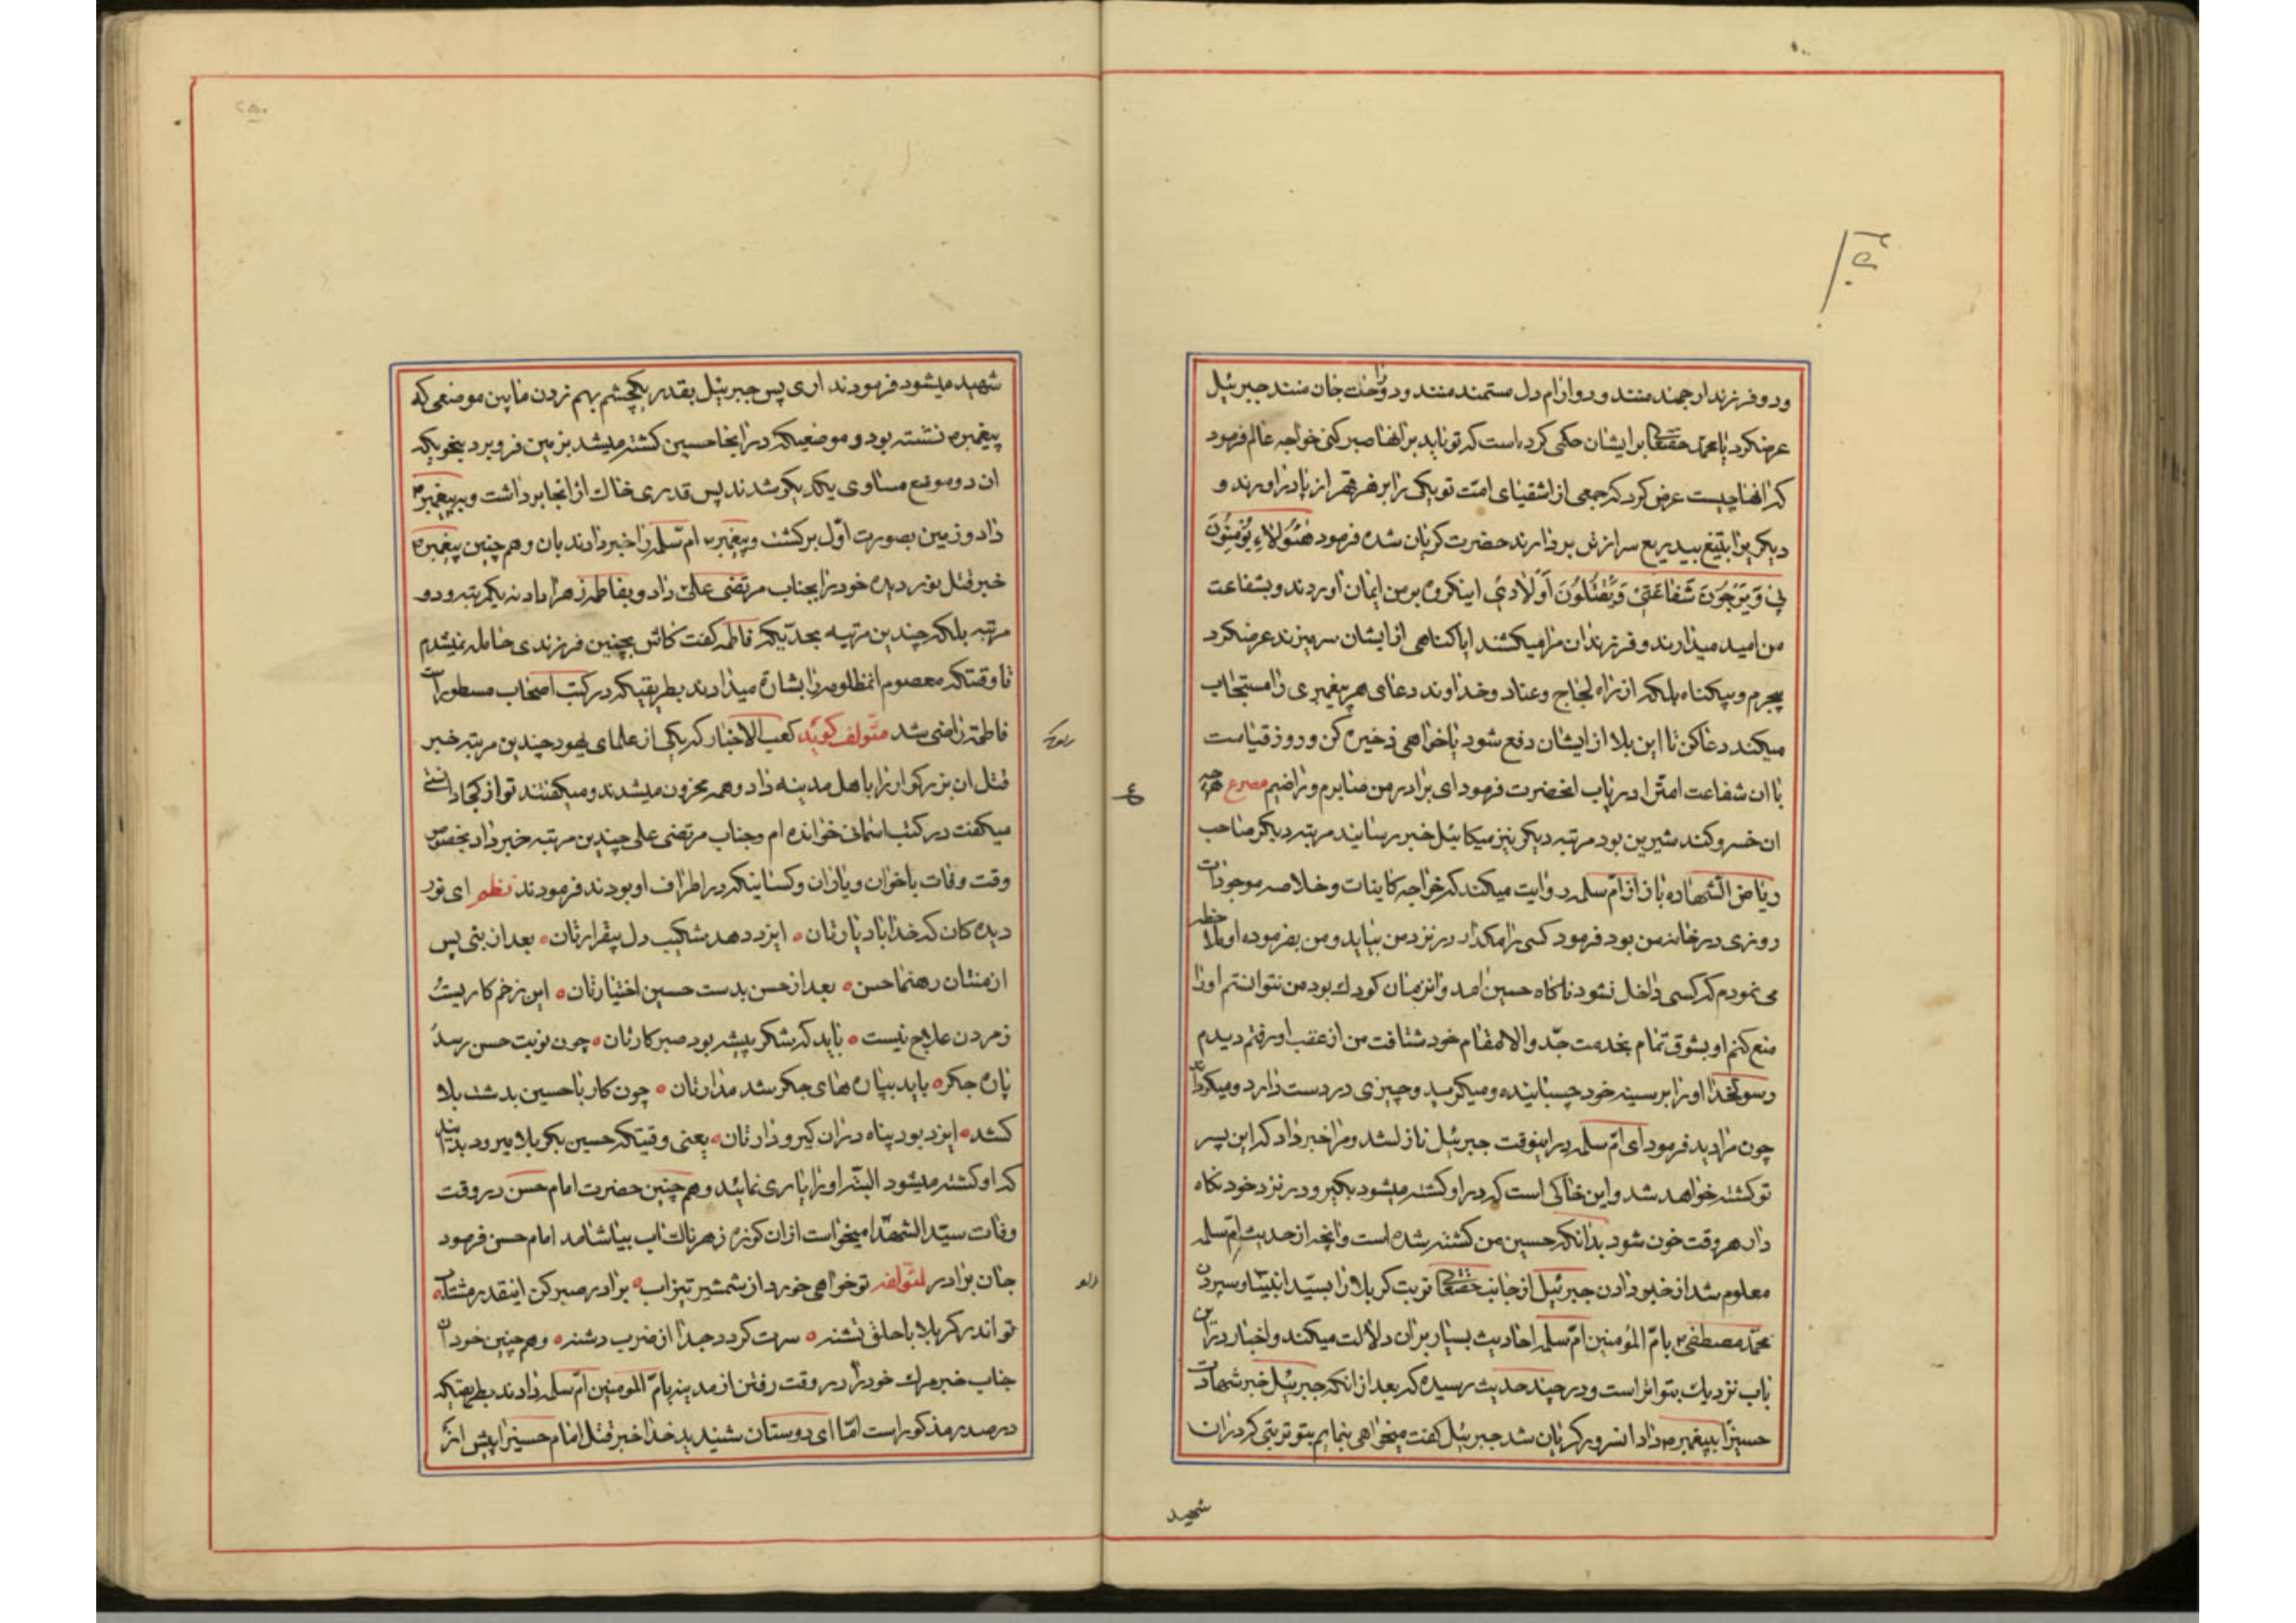 ودو فرزند ارجمند منند ودو ارام دل مستمند منند ودو راحت جان منند جبرئیل
عرضکرد یا محمد حقتعالی بر ایشان حکمی کرده است که تو باید بر انها صبر کنی خواجه عالم فرمود
که انها چیست عرض کرد که جمعی از اشقیای امت تو یکی را بزهر قهر از پا در اورند و
دیگریرا بتیغ بیدریغ سر از تن بردارند حضرت گریان شده فرمود هٰؤُلاءِ یُؤْمِنُونَ
بی وَیَرْجُونَ شَفاعَتی وَیَقْتُلُونَ اَوْلادی اینکروه بر من ایمان اوردند وبشفاعت
من امید میدارند وفرزندان مرا میکشند ایا کناهی از ایشان سر میزند عرضکرد
بیجرم وبیکناه بلکه از راه لجاج وعناد وخداوند دعای هر پیغمبری را مستجاب
میکند دعا کن تا این بلا از ایشان دفع شود یا خواهی ذخیره کن وروز قیامت
با ان شفاعت امترا دریاب انحضرت فرمود ای برادر من صابرم وراضیم مصرع هرچه
ان خسرو کند شیرین بود مرتبه دیکر نیز میکائیل خبر رسانید مرتبه دیکر صاحب
ریاض الشهاده باز از ام سلمه روایت میکند که خواجه کاینات وخلاصه موجودات
روزی در خانه من بود فرمود کسی را مکذار در نزد من بیاید ومن بفرموده او ملاحظه
می نمودم که کسی داخل نشود ناکاه حسین امد وانزمان کودک بود من نتوانستم اورا
منع کنم او بشوق تمام بخدمت جد والامقام خود شتافت من از عقب او رفتم دیدم
رسولخدا اورا بر سینه خود چسبانیده ومیکرید وچیزی در دست دارد ومیکرداند
چون مرا دید فرمود ای ام سلمه در اینوقت جبرئیل نازل شد ومرا خبر داد که این پسر
تو کشته خواهد شد واین خاکی است که در او کشته میشود بکیر ودر نزد خود نکاه
دار هر وقت خون شود بدانکه حسین من کشته شده است وانچه از حدیث ام سلمه
معلوم شد از خبر دادن جبرئیل از جانب حقتعالی تربت کربلا را بسید انبیا وسپردن
محمد مصطفی ص بام المؤمنین ام سلمه احادیث بسیار بران دلالت میکند واخبار در این
باب نزدیک بتواتر است ودر چند حدیث رسیده که بعد از انکه جبرئیل خبر شهادت
حسینرا بپیغمبر ص داد انسرور کریان شد جبرئیل کفت میخواهی بنمایم بتو تربتی که در ان
شهید
۲۵۰
شهید میشود فرمودند اری پس جبرئیل بقدر یکچشم بهم زدن مابین موضعی که
پیغمبر ص نشسته بود و موضعیکه در انجا حسین کشته میشد بزمین فرو برد بنحویکه
ان دو موضع مساوی یکدیکر شدند پس قدری خاک از انجا برداشت وبه پیغمبر ص
داد وزمین بصورت اول برکشت وپیغمبر ص ام سلمه را خبر دادند بان وهم چنین پیغمبر ص
خبر قتل نور دیده خود را بجناب مرتضی علی داد وبفاطمه زهرا داد نه یکمرتبه ودو
مرتبه بلکه چندین مرتبه بحدیکه فاطمه کفت کاش بچنین فرزندی حامله نمیشدم
تا وقتیکه معصوم انمظلومه را بشارة میدادند بطریقیکه در کتب اصحاب مسطور است
فاطمه راضی شد مؤلف کوید کعب الاخبار که یکی از علمای یهود چندین مرتبه خبر
قتل ان بزرکوار را باهل مدینه داد وهمه محزون میشدند ومیکفتند تو از کجا دانستی
میکفت در کتب اسمانی خوانده ام وجناب مرتضی علی چندین مرتبه خبر داد بخصوص
وقت وفات باخوان ویاران وکسانیکه در اطراف او بودند فرمودند نظم ای نور
دیده کان که خدا باد یارتان ه ایزد دهد شکیب دل بیقرارتان ه بعد از نبی پس
از منتان رهنما حسن ه بعد از حسن بدست حسین اختیارتان ه این زخم کاریست
زمردن علاج نیست ه باید که شکر پیشه بود صبر کارتان ه چون نوبت حسن رسد
پاره جکر ه باید بپاره های جکر شد مدارتان ه چون کار با حسین بدشت بلا
کشد ه ایزد بود پناه در ان کیر ودارتان ه یعنی وقتیکه حسین بکربلا میرود بدانید
که او کشته میشود البته اورا یاری نمائید وهم چنین حضرت امام حسن در وقت
وفات سید الشهدا میخواست از ان کوزه زهرناک اب بیاشامد امام حسن فرمود
جان برادر لمؤلفه تو خواهی خورد از شمشیر تیز اب ه برادر صبر کن اینقدر مشتاب ه
تو اندر کربلا با حلق تشنه ه سرت کردد جدا از ضرب دشنه ه وهم چنین خود ان
جناب خبر مرک خود را در وقت رفتن از مدینه بام المومنین ام سلمه دادند بطریقیکه
در صدر مذکور است اما ای دوستان شنیدید خدا خبر قتل امام حسینرا پیش از